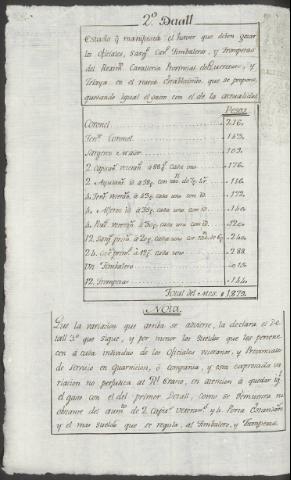 2º. Detall
Estado q manifiesta el haver que deben gozar
los Oficiales, Sarg.ˢ Cav.º Timbalero, y Trompetas
del Regim.ᵗᵒ Cavalleria Provincial de Queretaro, y
en el nuevo establecim.ᵗᵒ que se propone,
quedando igual el gasto con el de la actualidad
Pesos
Coronel 216.
Ten.ᵗᵉ Coronel
Sargento Maior
2. Capitan.ˢ veteran.ˢ à 88 p.ˢ cada uno 176.
2. Ayudan.ˢ à 58 p.ˢ con 116
4. Ten.ᵗˢ veteran.ˢ à 43 p.ˢ cada uno con id. 172.
4. Alferez id. à 35 p.ˢ cada uno con id. 140.
4. à 30 p.ˢ cada uno con id. 120.
12. Sarg.ˢ à 20 p.ˢ cada uno 240.
24. à 12 p.ˢ cada uno 288
Un Timbalero
12. Trompetas 144.
Total del Mes. 1873.
Nota.
Que la variacion que arriba se advierte, la declara el De-
tall 3º. que sigue, y por menor los sueldos que les pertene-
cen à cada individuo de los Oficiales veteranos, y Provinciales
de Servicio en Guarnicion, ô Campaña, y esta expresada va-
riacion no perjudica al R.ˡ Erario, en atencion à quedar ig.ˡ
el gasto con el del primer Detall, como se demuestra no
obstante del aum.ᵗᵒ de 2. Capit.ˢ Veteran.ˢ y 4. Porta Estandar.ˢ
y el mas sueldo que se regula al Timbalero, y Trompetas